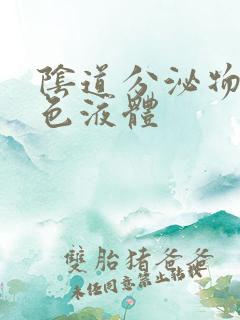 陰道分泌物
色液體
雙胎猪爸爸
未任同意禁止轉載